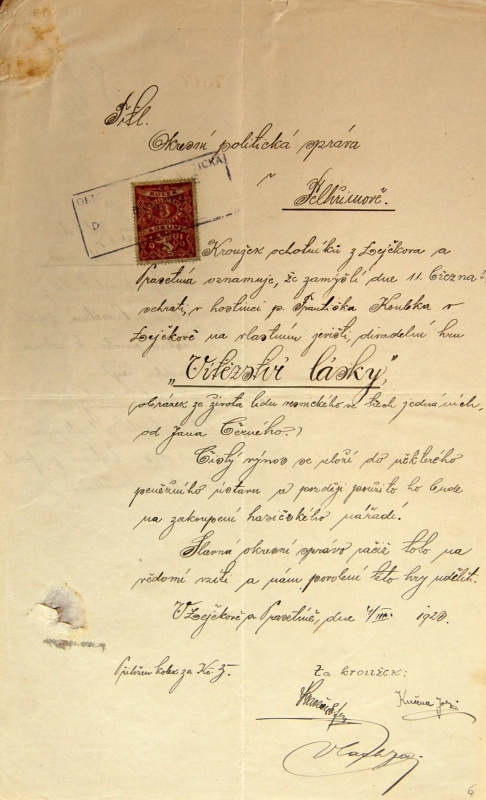 Okresní politická správa
v
Pelhřimově.
KOLEK
3
KORUNY
Kroužek ochotníků z Zaječkova a
Pravětína oznamuje, že zamýšlí dne 11. března
sehrati, v hostinci p. Františka Koubka v
na vlastním jevišti, divadelní hru
„Vítězství lásky",
obrázek ze života lidu venkovského ve třech jednáních,
od Jana Černého.)
Čistý výnos se uloží do některého
peněžního ústavu a později použito ho bude
na zakoupení hasičského nářadí.
Slavná okresní správo račiž toto na
vědomí vzíti a nám povolení této hry uděliti.
V a Pravětíně, dne 1923.
Přiložen kolek za Kč 3.
Za kroužek:
6